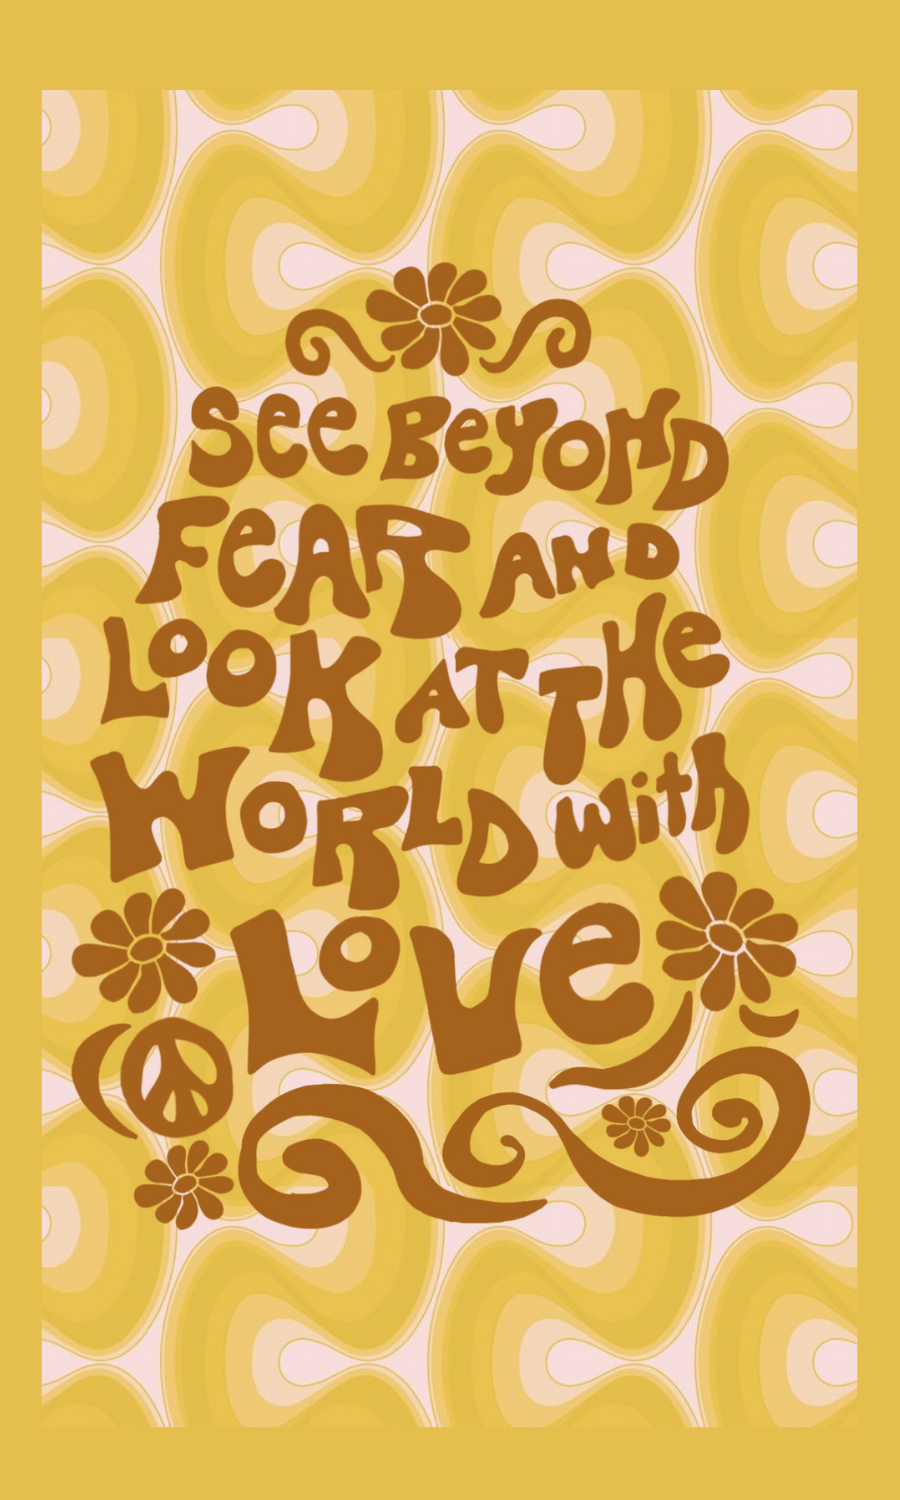 See Beyond
Fear and
Look at the
World with
Love